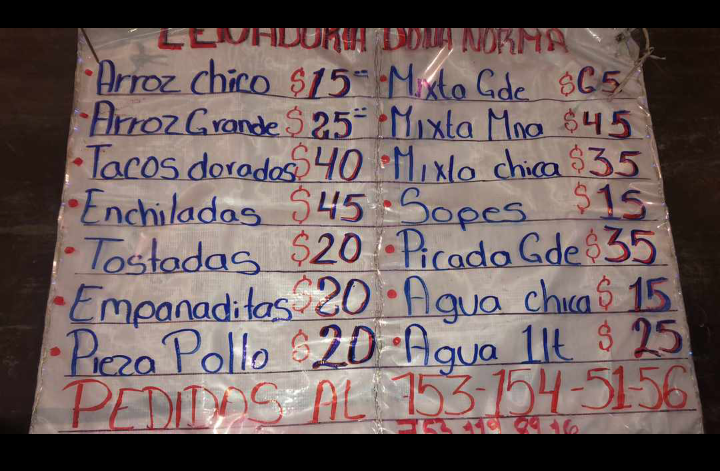 CENADURIA DOÑA NORMA
• Arroz chico $15=
• Arroz Grande $25=
• Tacos dorados $40
• Enchiladas $45
• Tostadas $20
• Empanaditas $20
• Pieza Pollo $20
• Mixta Gde $65
• Mixta Mna $45
• Mixta chica $35
• Sopes $15
• Picada Gde $35
• Agua chica $15
• Agua 1lt $25
PEDIDOS AL 753-154-51-56